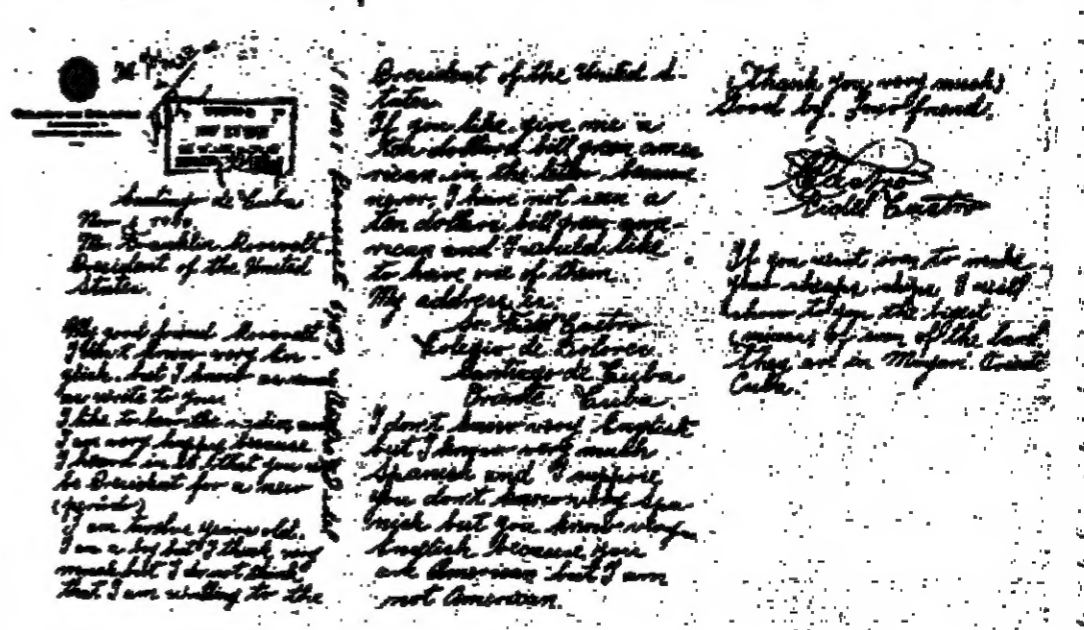 Santiago de Cuba
Nov 6 1940
Mr. Franklin Roosevelt
President of the United
States.
My good friend Roosevelt
I don't know very En-
glish, but I know as much
as write to you.
I like to hear the radio, and
I am very happy, because
I heard in it, that you will
be President for a new
(periodo)
I am twelve years old.
I am a boy but I think very
much but I do not think
that I am writting to the
President of the United S-
tates.
If you like, give me a
ten dollars bill green ame-
rican, in the letter, because
never, I have not seen a
ten dollars bill green ame-
rican and I would like
to have one of them.
My address is:
Sr. Fidel Castro
Colegio de Dolores
Santiago de Cuba
Oriente. Cuba.
I don't know very English
but I know very much
Spanish and I suppose
you don't know very Spa-
nish but you know very
English because you
are American but I am
not American.
(Thank you very much)
Good by. Your friend,
Castro
Fidel Castro
If you want iron to make
your sheaps ships I will
show to you the bigest
(minas) of iron of the land.
They are in Mayari. Oriente
Cuba.